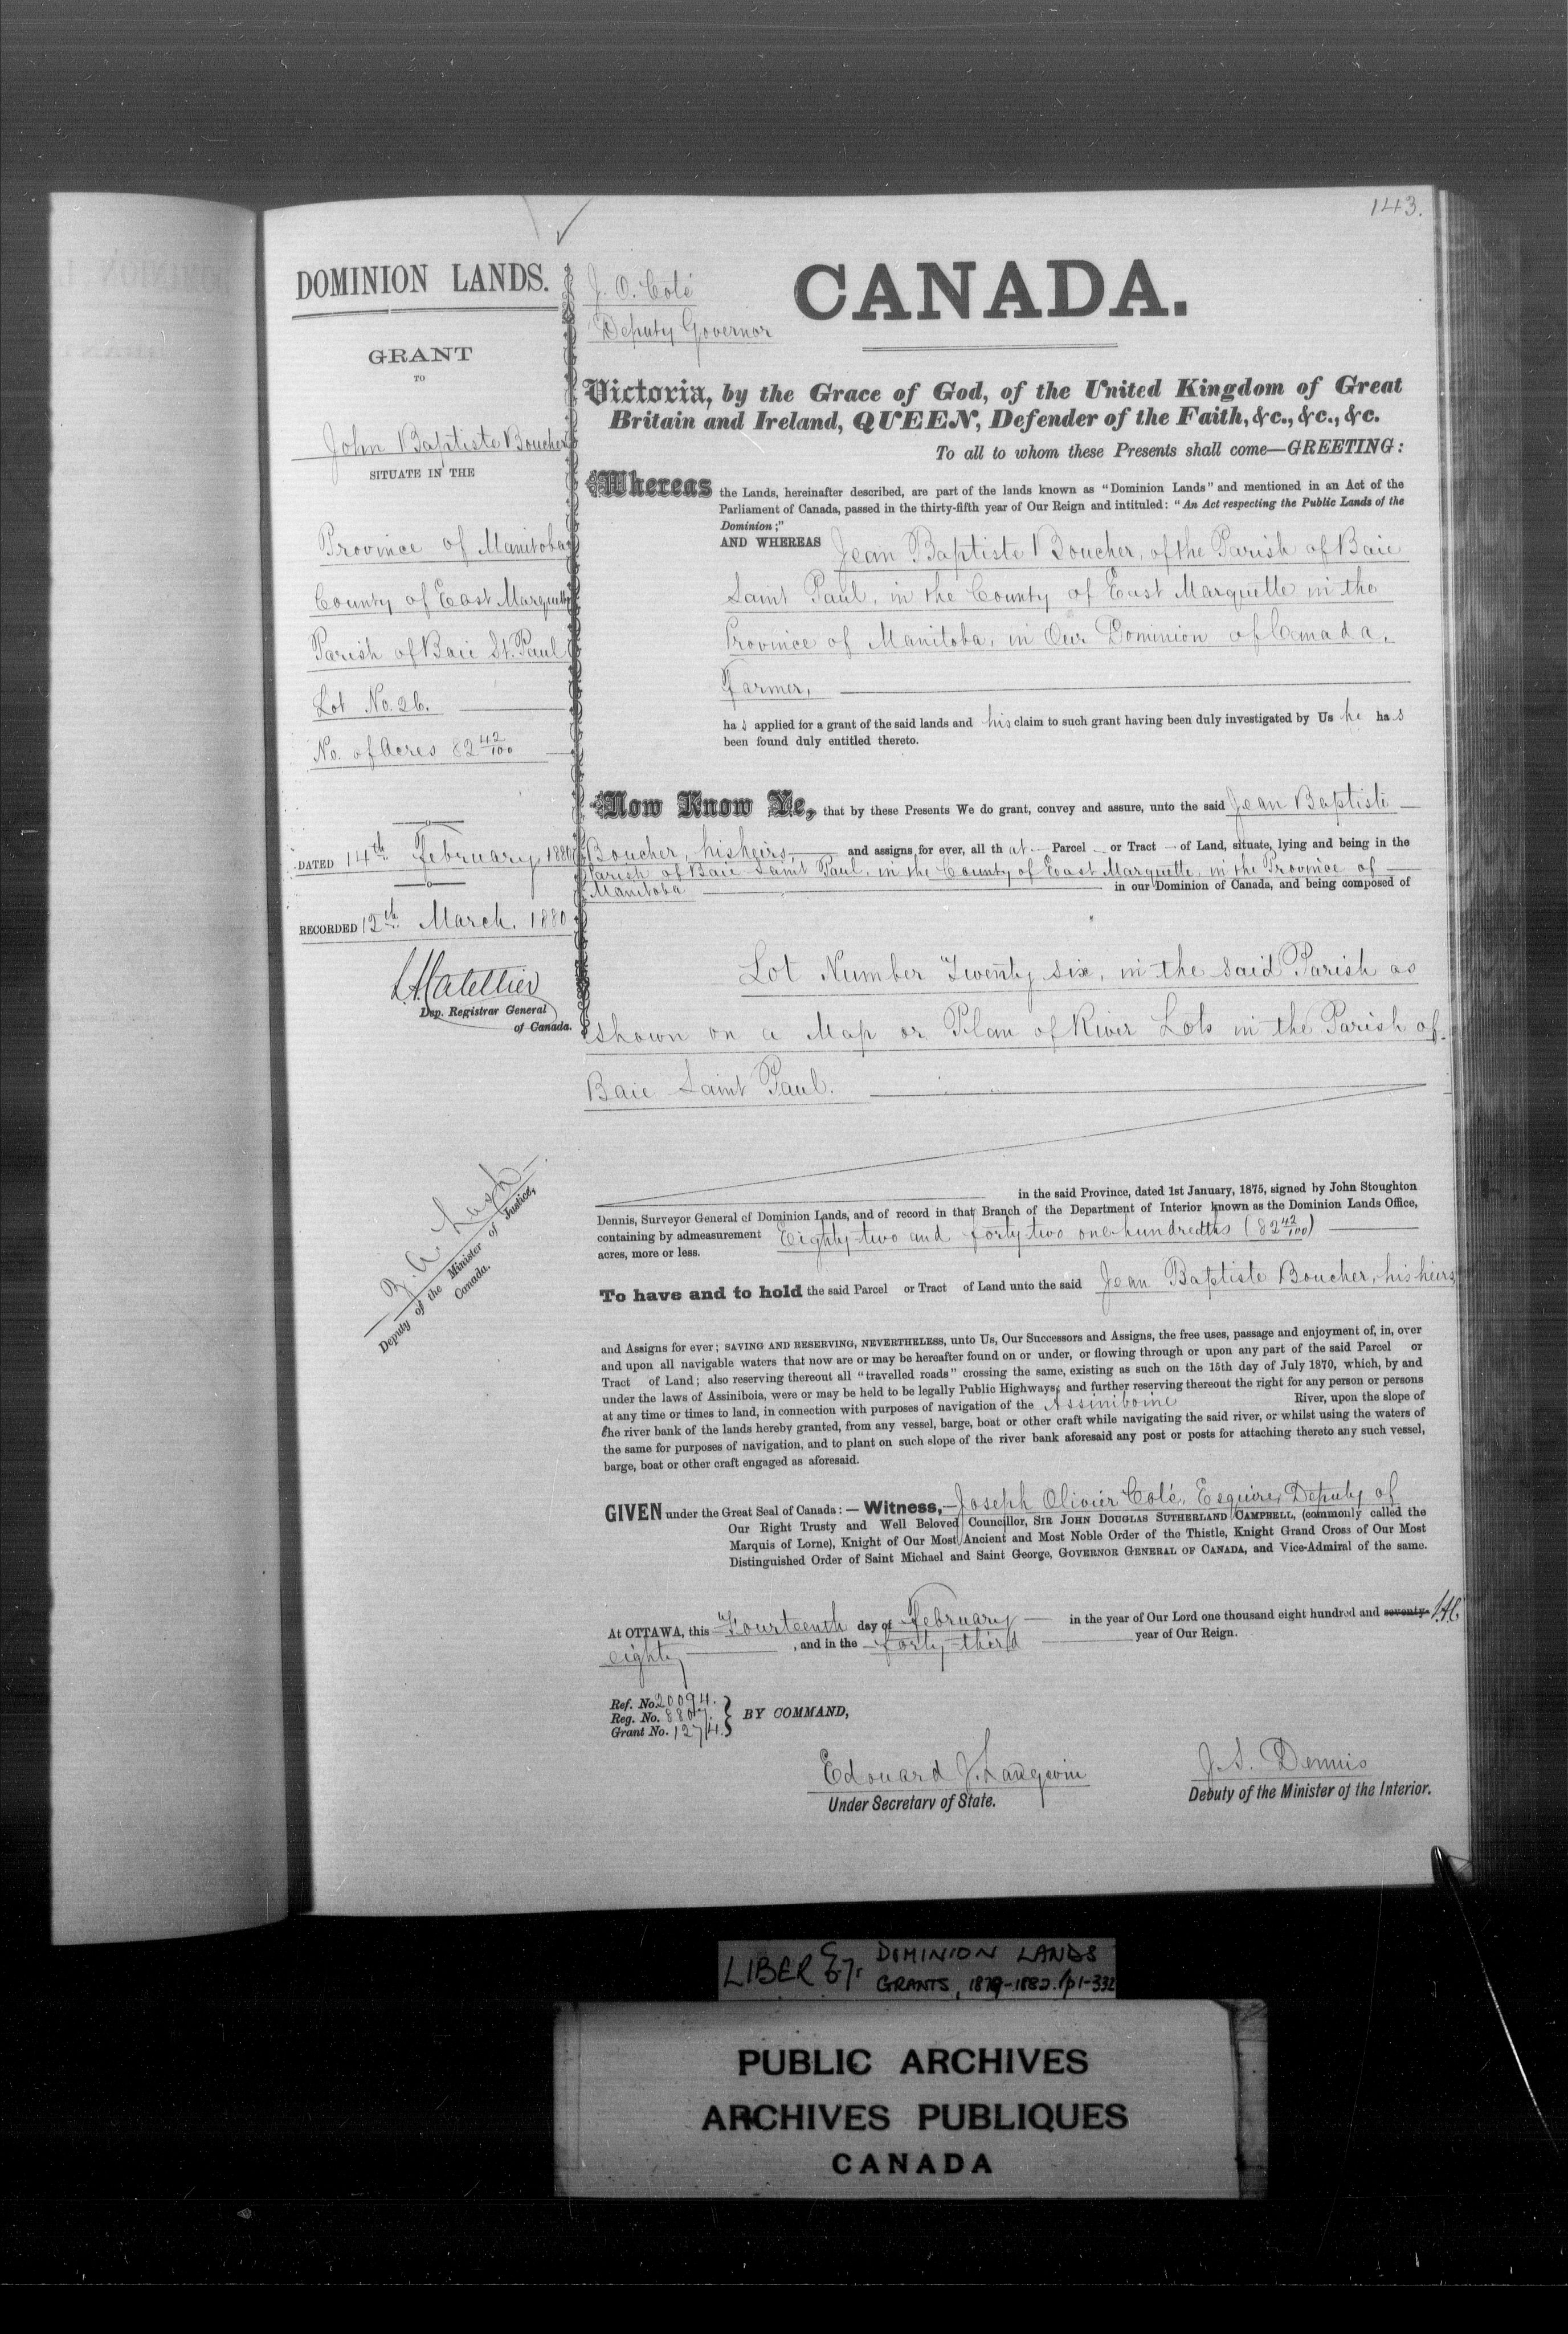 143.
DOMINION LANDS.
GRANT
TO
John Baptiste Boucher
SITUATE IN THE
Province of Manitoba
County of East Marquette
Parish of Baie St. Paul
Lot No. 26.
No. of Acres 82 42/100
DATED 14th February 1880
RECORDED 12th March. 1880
Dep. Registrar General
of Canada.
Z. A. Lash
Deputy of the Minister of Justice,
Canada.
J. O. Colé
Deputy Governor
CANADA.
Victoria, by the Grace of God, of the United Kingdom of Great
Britain and Ireland, QUEEN, Defender of the Faith, &c., &c., &c.
To all to whom these Presents shall come—GREETING:
Whereas the Lands, hereinafter described, are part of the lands known as "Dominion Lands" and mentioned in an Act of the
Parliament of Canada, passed in the thirty-fifth year of Our Reign and intituled: "An Act respecting the Public Lands of the
Dominion;"
AND WHEREAS Jean Baptiste Boucher, of the Parish of Baie
Saint Paul, in the County of East Marquette in the
Province of Manitoba, in Our Dominion of Canada,
Farmer,
has applied for a grant of the said lands and his claim to such grant having been duly investigated by Us he has
been found duly entitled thereto.
Now Know Ye, that by these Presents We do grant, convey and assure, unto the said Jean Baptiste
Boucher, his heirs, and assigns for ever, all that Parcel or Tract of Land, situate, lying and being in the
Parish of Baie Saint Paul, in the County of East Marquette, in the Province of
Manitoba in our Dominion of Canada, and being composed of
Lot Number Twenty six, in the said Parish as
shown on a Map or Plan of River Lots in the Parish of
Baie Saint Paul.
in the said Province, dated 1st January, 1875, signed by John Stoughton
Dennis, Surveyor General of Dominion Lands, and of record in that Branch of the Department of Interior known as the Dominion Lands Office,
containing by admeasurement Eighty-two and forty-two one-hundredths (82 42/100)
acres, more or less.
To have and to hold the said Parcel or Tract of Land unto the said Jean Baptiste Boucher, his heirs
and Assigns for ever; SAVING AND RESERVING, NEVERTHELESS, unto Us, Our Successors and Assigns, the free uses, passage and enjoyment of, in, over
and upon all navigable waters that now are or may be hereafter found on or under, or flowing through or upon any part of the said Parcel or
Tract of Land; also reserving thereout all "travelled roads" crossing the same, existing as such on the 15th day of July 1870, which, by and
under the laws of Assiniboia, were or may be held to be legally Public Highways; and further reserving thereout the right for any person or persons
at any time or times to land, in connection with purposes of navigation of the Assiniboine River, upon the slope of
the river bank of the lands hereby granted, from any vessel, barge, boat or other craft while navigating the said river, or whilst using the waters of
the same for purposes of navigation, and to plant on such slope of the river bank aforesaid any post or posts for attaching thereto any such vessel,
barge, boat or other craft engaged as aforesaid.
GIVEN under the Great Seal of Canada:—Witness,—Joseph Olivier Colé, Esquire, Deputy of
Our Right Trusty and Well Beloved Councillor, SIR JOHN DOUGLAS SUTHERLAND CAMPBELL, (commonly called the
Marquis of Lorne), Knight of Our Most Ancient and Most Noble Order of the Thistle, Knight Grand Cross of Our Most
Distinguished Order of Saint Michael and Saint George, GOVERNOR GENERAL OF CANADA, and Vice-Admiral of the same.
At OTTAWA, this Fourteenth day of February in the year of Our Lord one thousand eight hundred and seventy-
eighty, and in the forty-third year of Our Reign.
Ref. No. 20094.
Reg. No. 8807.
Grant No. 1274.
BY COMMAND,
Edouard J. Langevin
Under Secretary of State.
J. S. Dennis
Deputy of the Minister of the Interior.
LIBER
DOMINION LANDS
GRANTS, 1879-1882. p1-332
PUBLIC ARCHIVES
ARCHIVES PUBLIQUES
CANADA